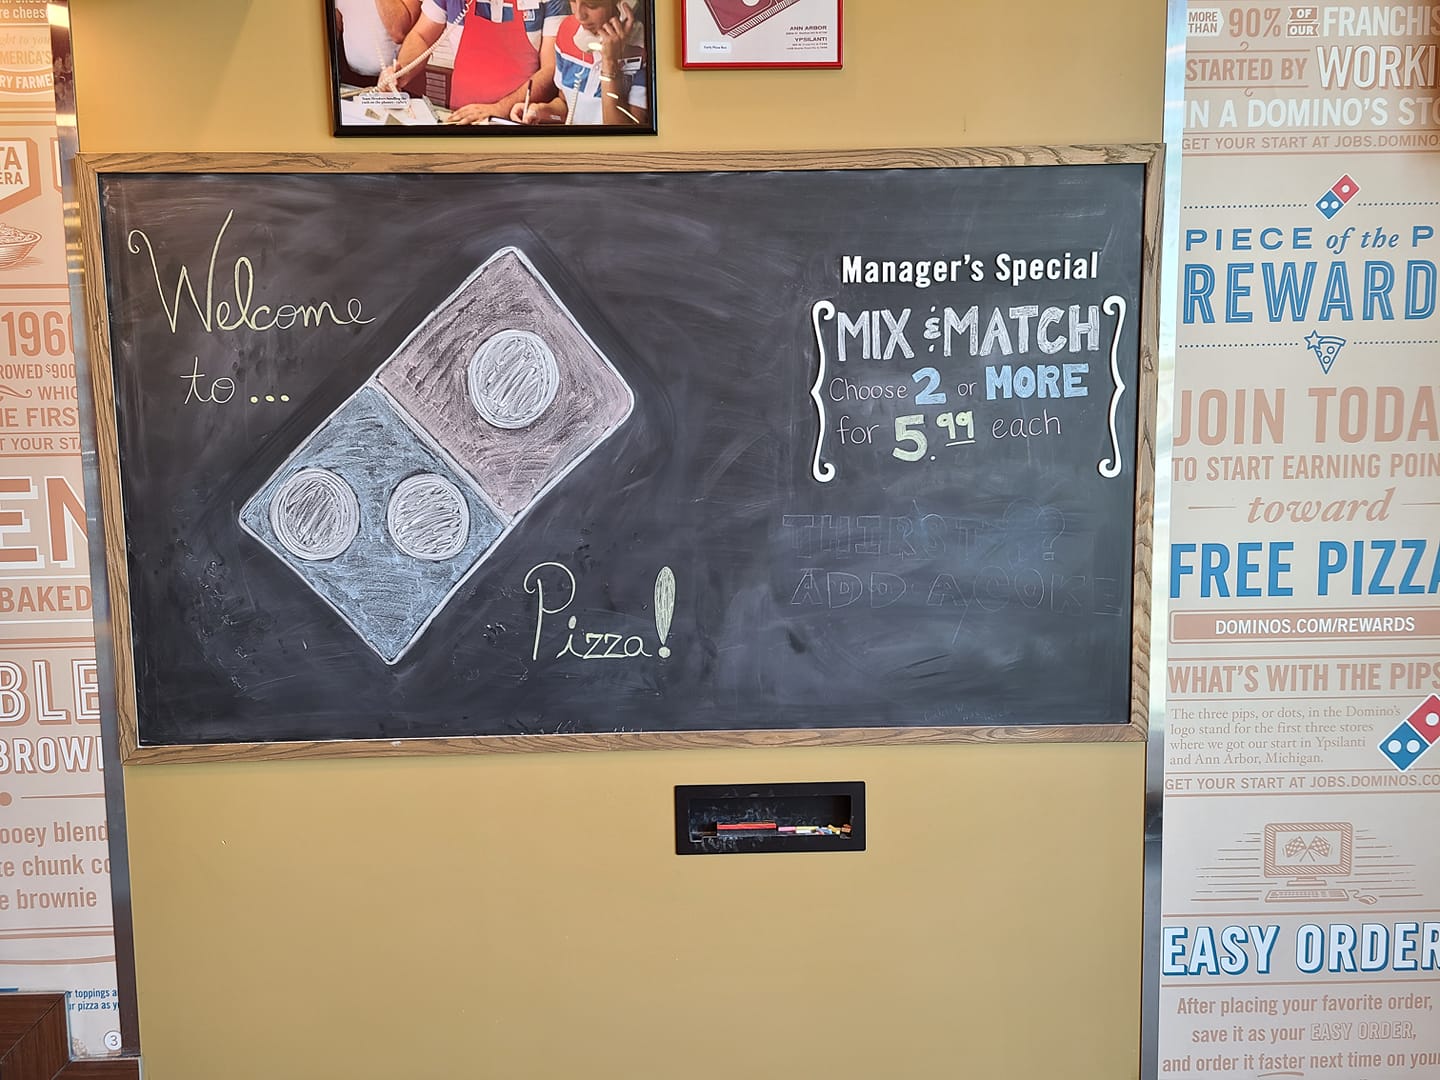 ANN ARBOR
YPSILANTI
Welcome
to...
Pizza!
Manager's Special
MIX & MATCH
Choose 2 or MORE
for 5.99 each
THIRSTY??
ADD A COKE
1960
THE FIRST
BAKED
BLE
BROWN
ooey blend
te chunk co
e brownie
r toppings a
ur pizza as y
3
MORE THAN 90% OF OUR FRANCHIS
STARTED BY WORKI
IN A DOMINO'S STO
GET YOUR START AT JOBS.DOMINO
PIECE of the P
REWARD
JOIN TODA
TO START EARNING POIN
toward
FREE PIZZA
DOMINOS.COM/REWARDS
WHAT'S WITH THE PIPS
The three pips, or dots, in the Domino's
logo stand for the first three stores
where we got our start in Ypsilanti
and Ann Arbor, Michigan.
GET YOUR START AT JOBS.DOMINOS.CO
EASY ORDER
After placing your favorite order,
save it as your EASY ORDER,
and order it faster next time on your